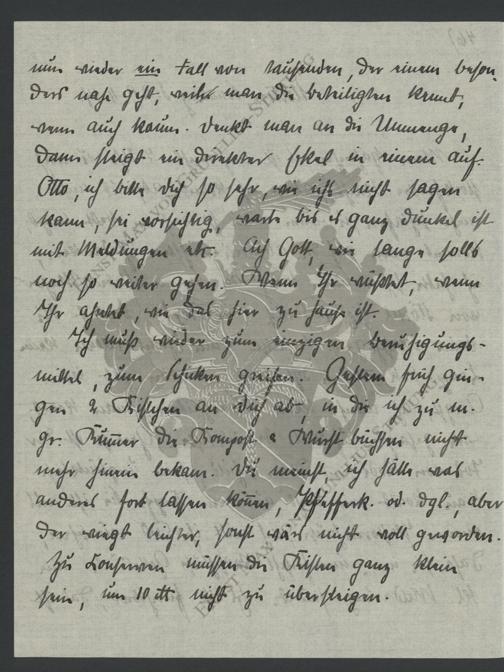 nun wieder ein Fall von tausenden, der einem beson-
ders nahe geht, weil man die Beteiligten kennt,
wenn auch kaum. Denkt man an die Unmenge,
dann steigt ein direkter Ekel in einem auf.
Otto, ich bitte Dich so sehr, wie ichs nicht sagen
kann, sei vorsichtig, warte bis es ganz dunkel ist
mit Meldungen etc. Ach Gott, wie lange solls
noch so weiter gehen. Wenn Ihr wüßtet, wenn
Ihr ahntet, wie das hier zu Hause ist.
Ich muß wieder zum einzigen Beruhigungs-
mittel, zum Schicken greifen. Gestern früh gin-
gen 2 Kistchen an Dich ab, in die ich zu m.
gr. Kummer die Kompost & Wurst büchsen nicht
mehr hinein bekam. Du meinst ich hätte was
anderes fort lassen können, Pfefferk. od. dgl., aber
der wiegt leichter, sonst wärs nicht voll geworden.
Zu Konserven müssen die Kisten ganz klein
sein, um 10 ℔ nicht zu übersteigen.